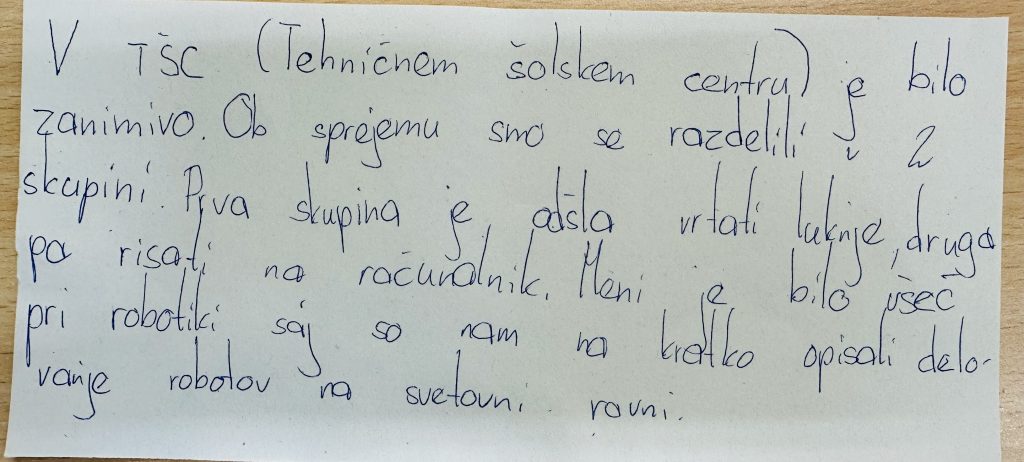 V TŠC (Tehničnem šolskem centru) je bilo
zanimivo. Ob sprejemu smo se razdelili v 2
skupini. Prva skupina je odšla vrtati luknje, druga
pa risati na računalnik. Meni je bilo všeč
pri robotiki saj so nam na kratko opisali delo-
vanje robotov na svetovni ravni.